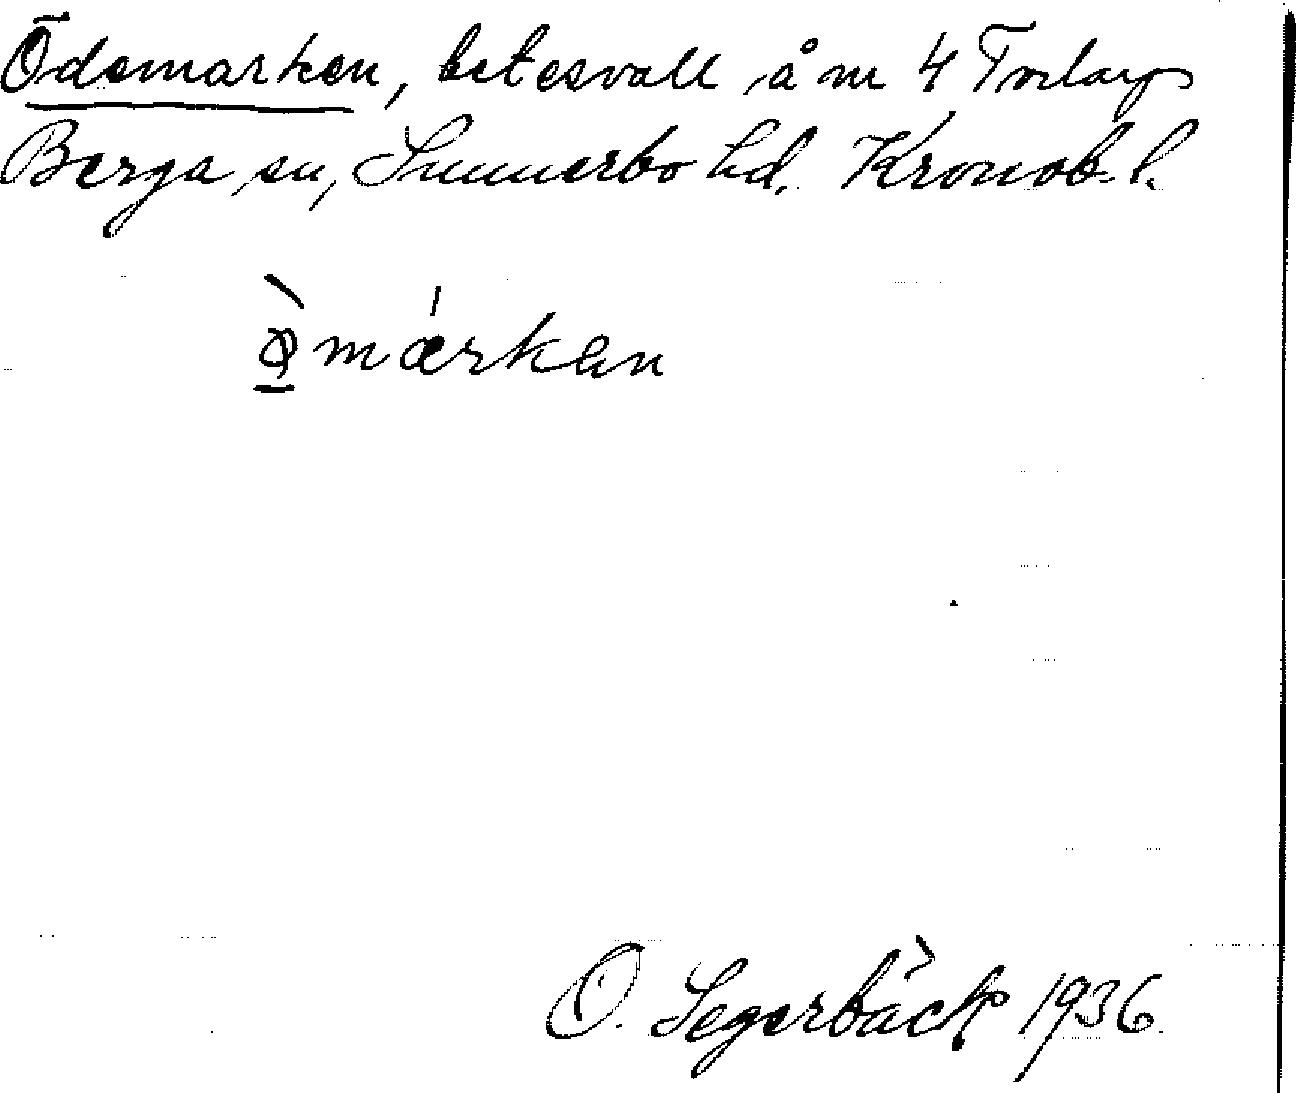 Ödemarken, betesvall å nr 4 Torlarp
Berga sn, Sunnerbo hd. Kronob. l.
ø̀mǽrkan
O. Segerbäck 1936.